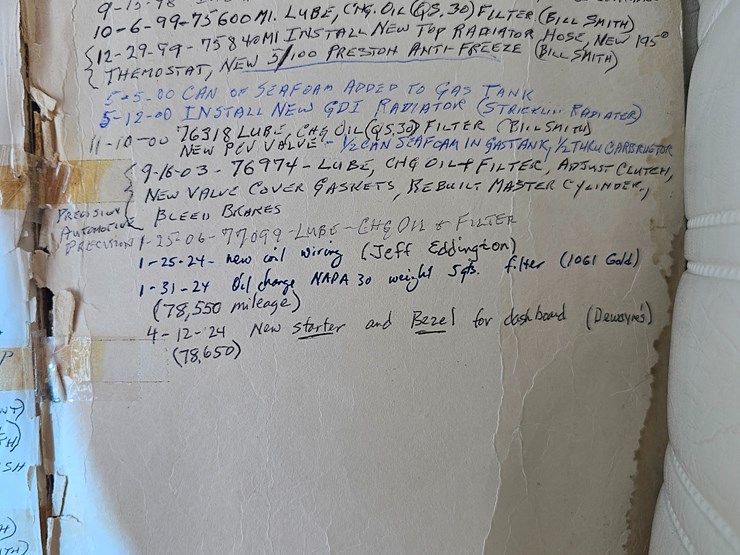 9-15-98
10-6-99-75600MI. LUBE, CHG. OIL (Q.S. 30) FILTER (BILL SMITH)
12-29-99-75840MI INSTALL NEW TOP RADIATOR HOSE, NEW 195°
THEMOSTAT, NEW 5/100 PRESTON ANTI-FREEZE (BILL SMITH)
5-5-00 CAN OF SEAFOAM ADDED TO GAS TANK
5-12-00 INSTALL NEW GDI RADIATOR (STRICKLIN RADIATOR)
11-10-00 76318 LUBE, CHG OIL (Q.S. 30) FILTER (BILL SMITH)
NEW PCV VALVE - 1/2 CAN SEAFOAM IN GAS TANK, 1/2 THRU CARBURETOR
9-16-03 - 76974 - LUBE, CHG OIL & FILTER, ADJUST CLUTCH,
NEW VALVE COVER GASKETS, REBUILT MASTER CYLINDER,
BLEED BRAKES
PRECISION
AUTOMOTIVE
PRECISION 1-25-06-77099-LUBE-CHG OIL & FILTER
1-25-24- new coil wiring (Jeff Eddington)
1-31-24 Oil change NAPA 30 weight 5qts. filter (1061 Gold)
(78,550 mileage)
4-12-24 New starter and Bezel for dashboard (Dewayne's)
(78,650)